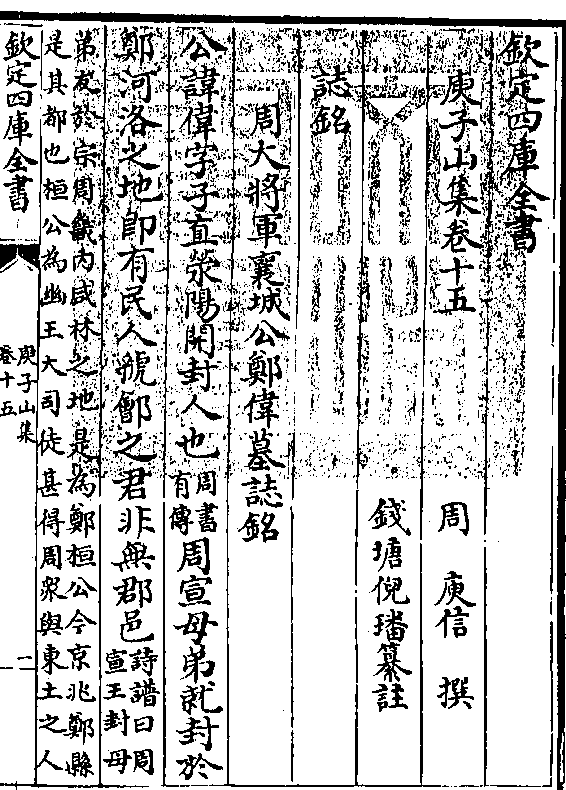 欽定四庫全書
庾子山集卷十五
周　庾信　撰
錢塘倪璠纂註
誌銘
周大將軍襄城公鄭偉墓誌銘
公諱偉字子直滎陽開封人也周書有傳周宣母弟就封於
鄭河洛之地即有民人虢鄶之君非無郡邑詩譜曰周宣王封母
弟友於宗周畿内咸林之地是為鄭桓公今京兆鄭縣
是其都也桓公為幽王大司徒甚得周衆與東土之人
欽定四庫全書
庾子山集
卷十五
一